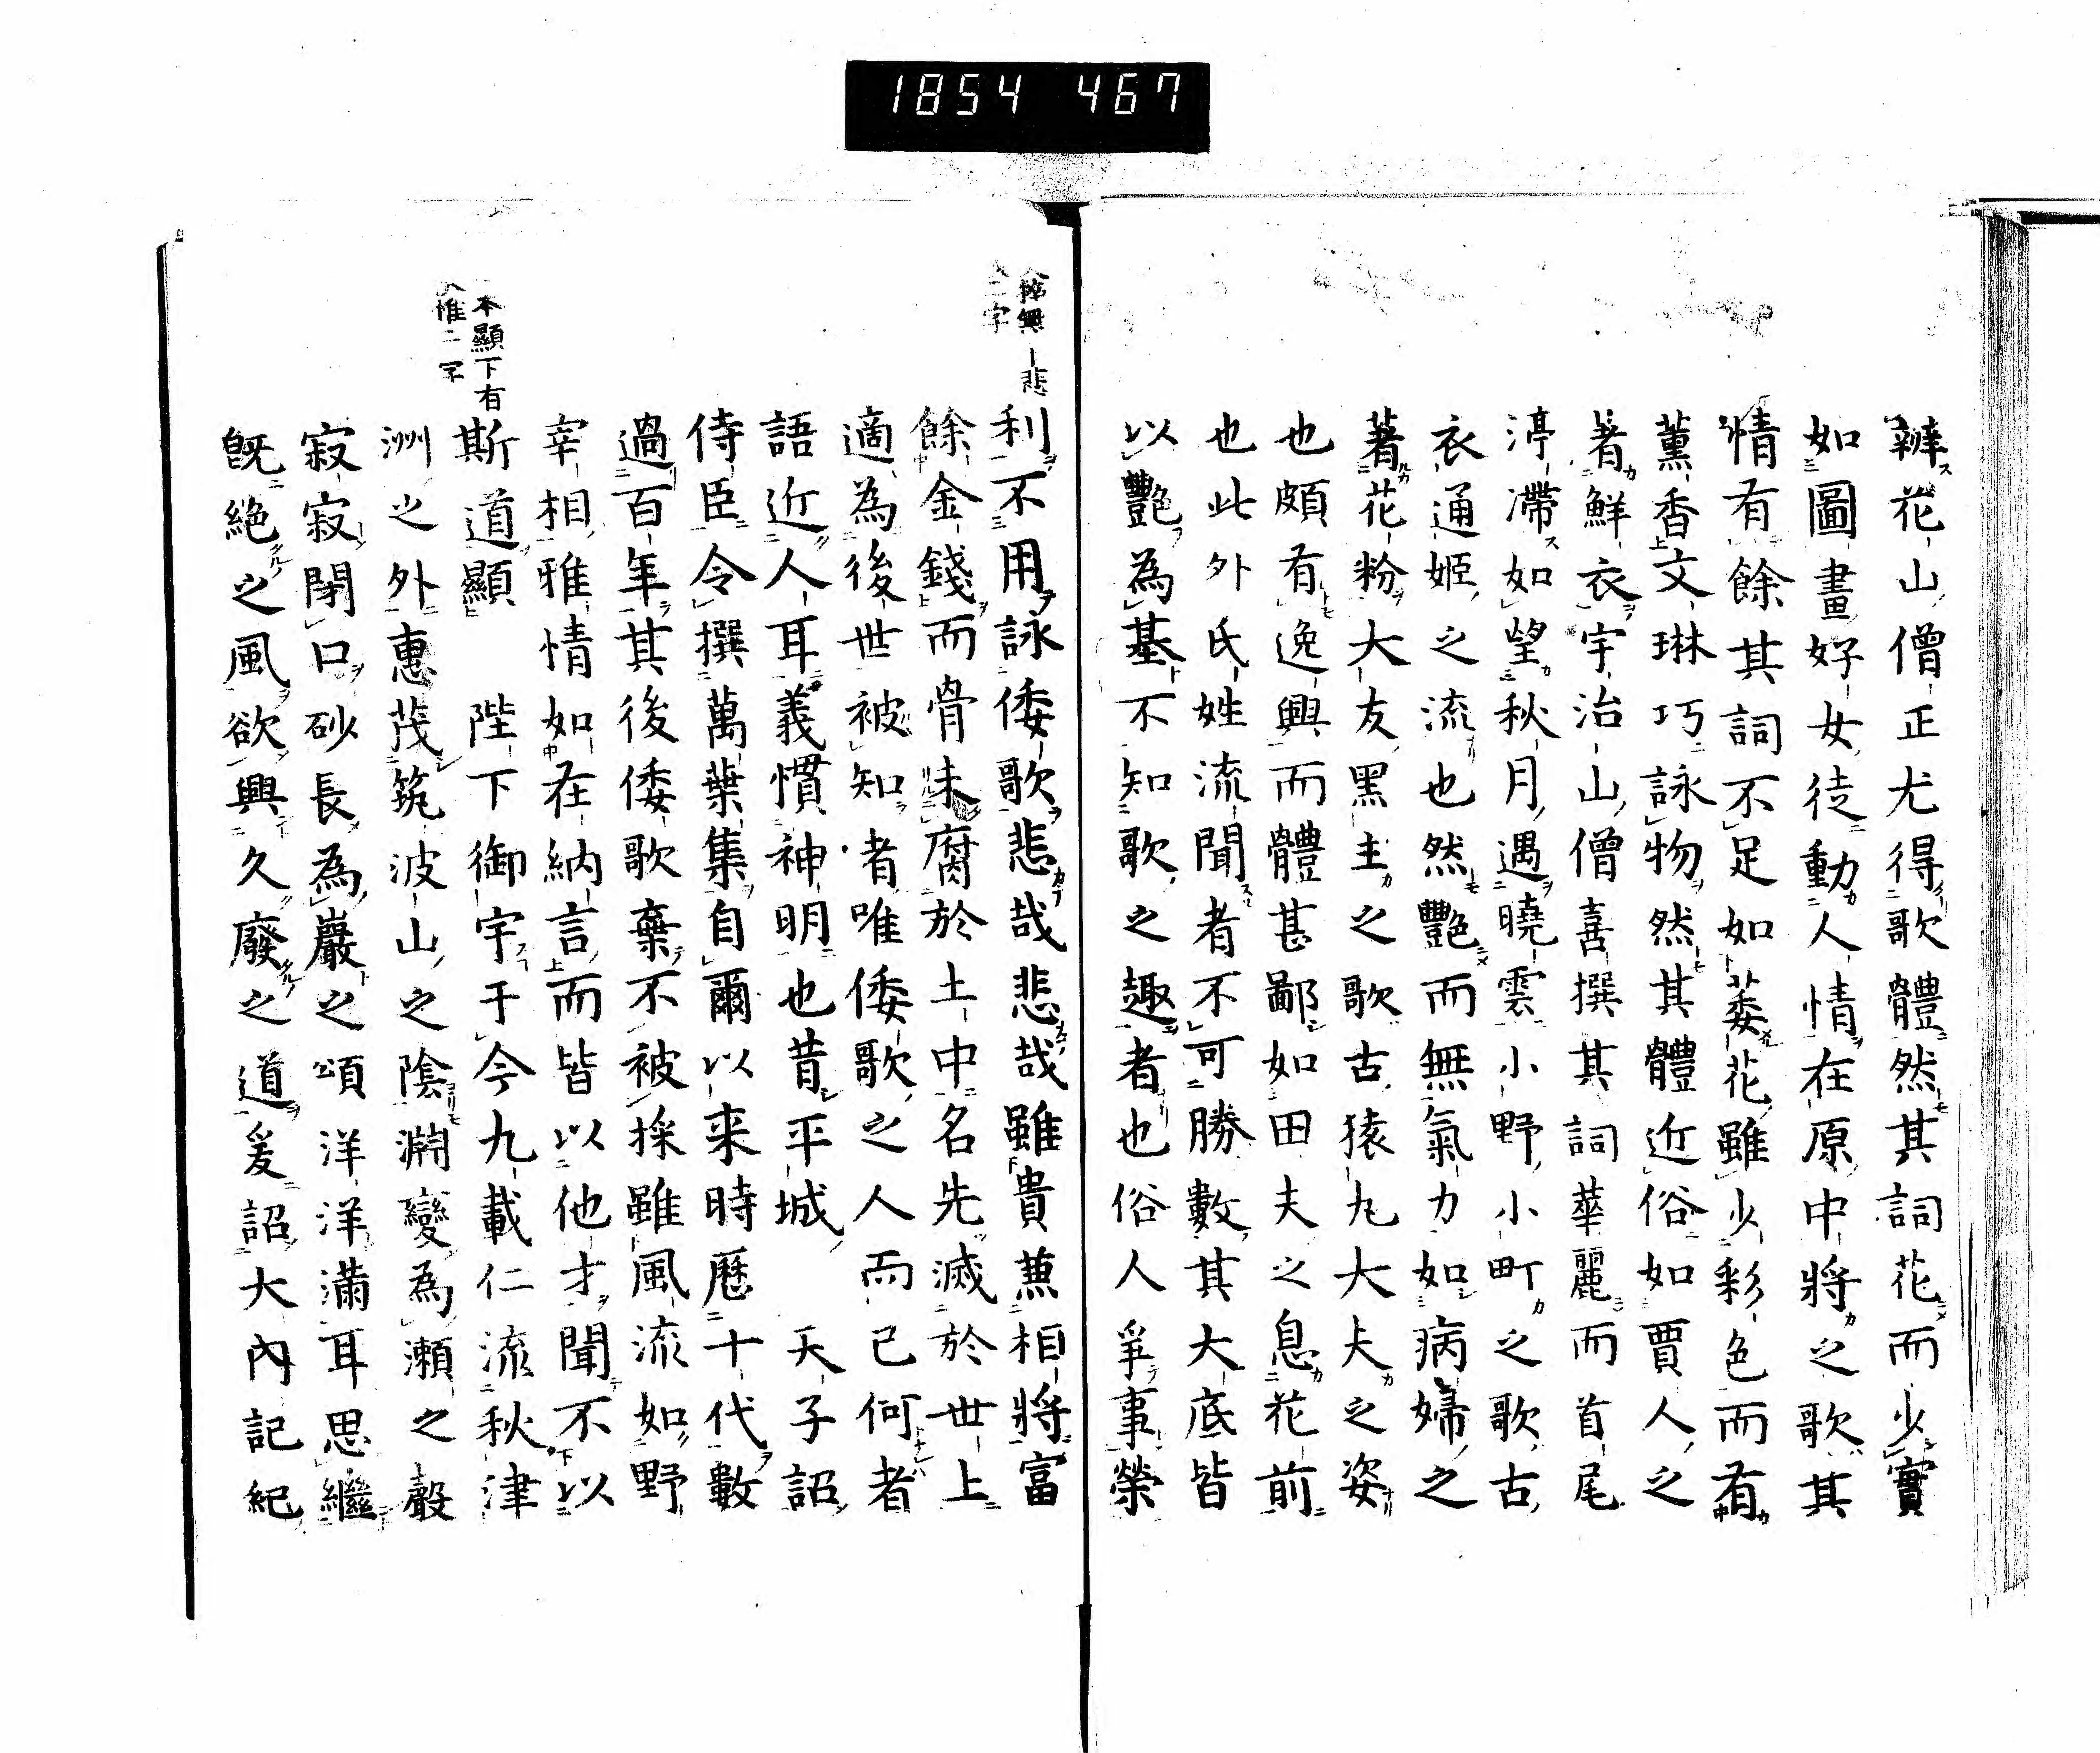 1854 467
辤花山僧正尤得歌體然其詞花而少實
如圖畫好女徒動人情在原中將之歌其
情有餘其詞不足如萎花雖少彩色而有
薫香文琳巧詠物然其體近俗如賈人之
著鮮衣宇治山僧喜撰其詞華麗而首尾
渟滯如望秋月遇曉雲小野小町之歌古
衣通姫之流也然艷而無氣力如病婦之
著花粉大友黒主之歌古猿丸大夫之姿
也頗有逸興而體甚鄙如田夫之息花前
也此外氏姓流聞者不可勝數其大底皆
以艷為基不知歌之趣者也俗人爭事榮
利不用詠倭歌悲哉悲哉雖貴兼相將富
餘金錢而骨未腐於土中名先滅於世上
適為後世被知者唯倭歌之人而已何者
語近人耳義慣神明也昔平城天子詔
侍臣令撰萬葉集自爾以来時歷十代數
過百年其後倭歌棄不被採雖風流如野
宰相雅情如在納言而皆以他才聞不以
斯道顯 陛下御宇于今九載仁流秋津
洲之外惠茂筑波山之陰淵變為瀬之聲
寂寂閉口砂長為巖之頌洋洋滿耳思繼
既絶之風欲興久廢之道爰詔大内記紀
無 悲
二字
本顯下有
惟二字